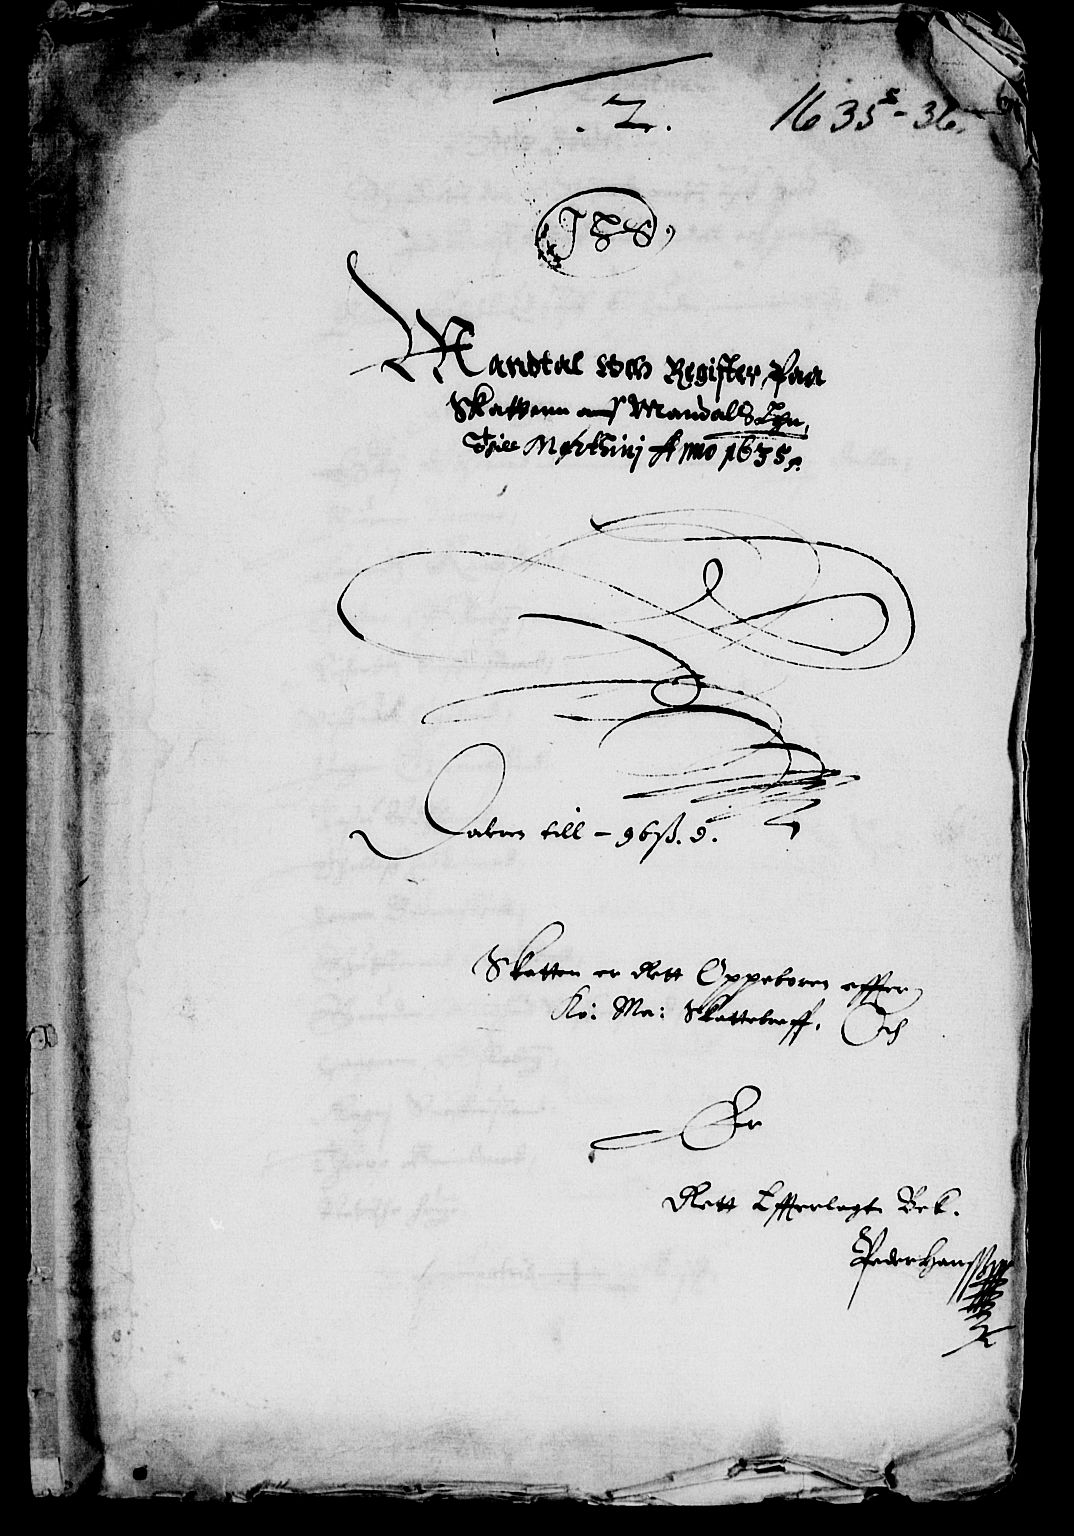 . 2.
1635-36.
188,
Mandtal och Register Paa
Skattenn aff Mandals Lhn,
Thill Morthinj Anno 1635.
till - 96 ß. 9.
Skatten er Rett Oppeboren effter
Ko: Ma: Skattebreff, Och
Er
Rett Efferlagt Bek.
Peder Hanssen